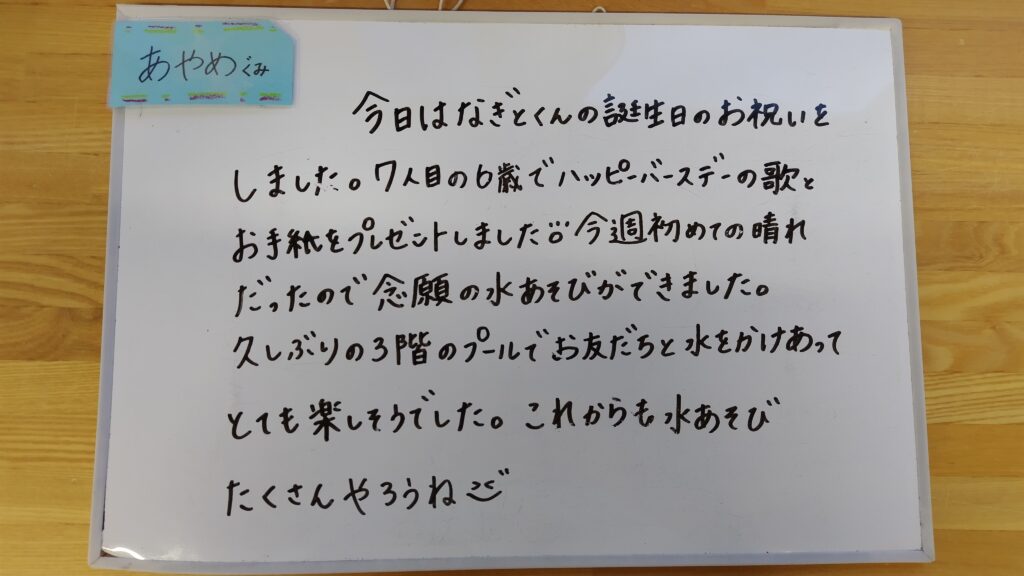 あやめぐみ
今日はなぎとくんの誕生日のお祝いを
しました。7人目の6歳でハッピーバースデーの歌と
お手紙をプレゼントしました。今週初めての晴れ
だったので念願の水あそびができました。
久しぶりの3階のプールでお友だちと水をかけあって
とても楽しそうでした。これからも水あそび
たくさんやろうね